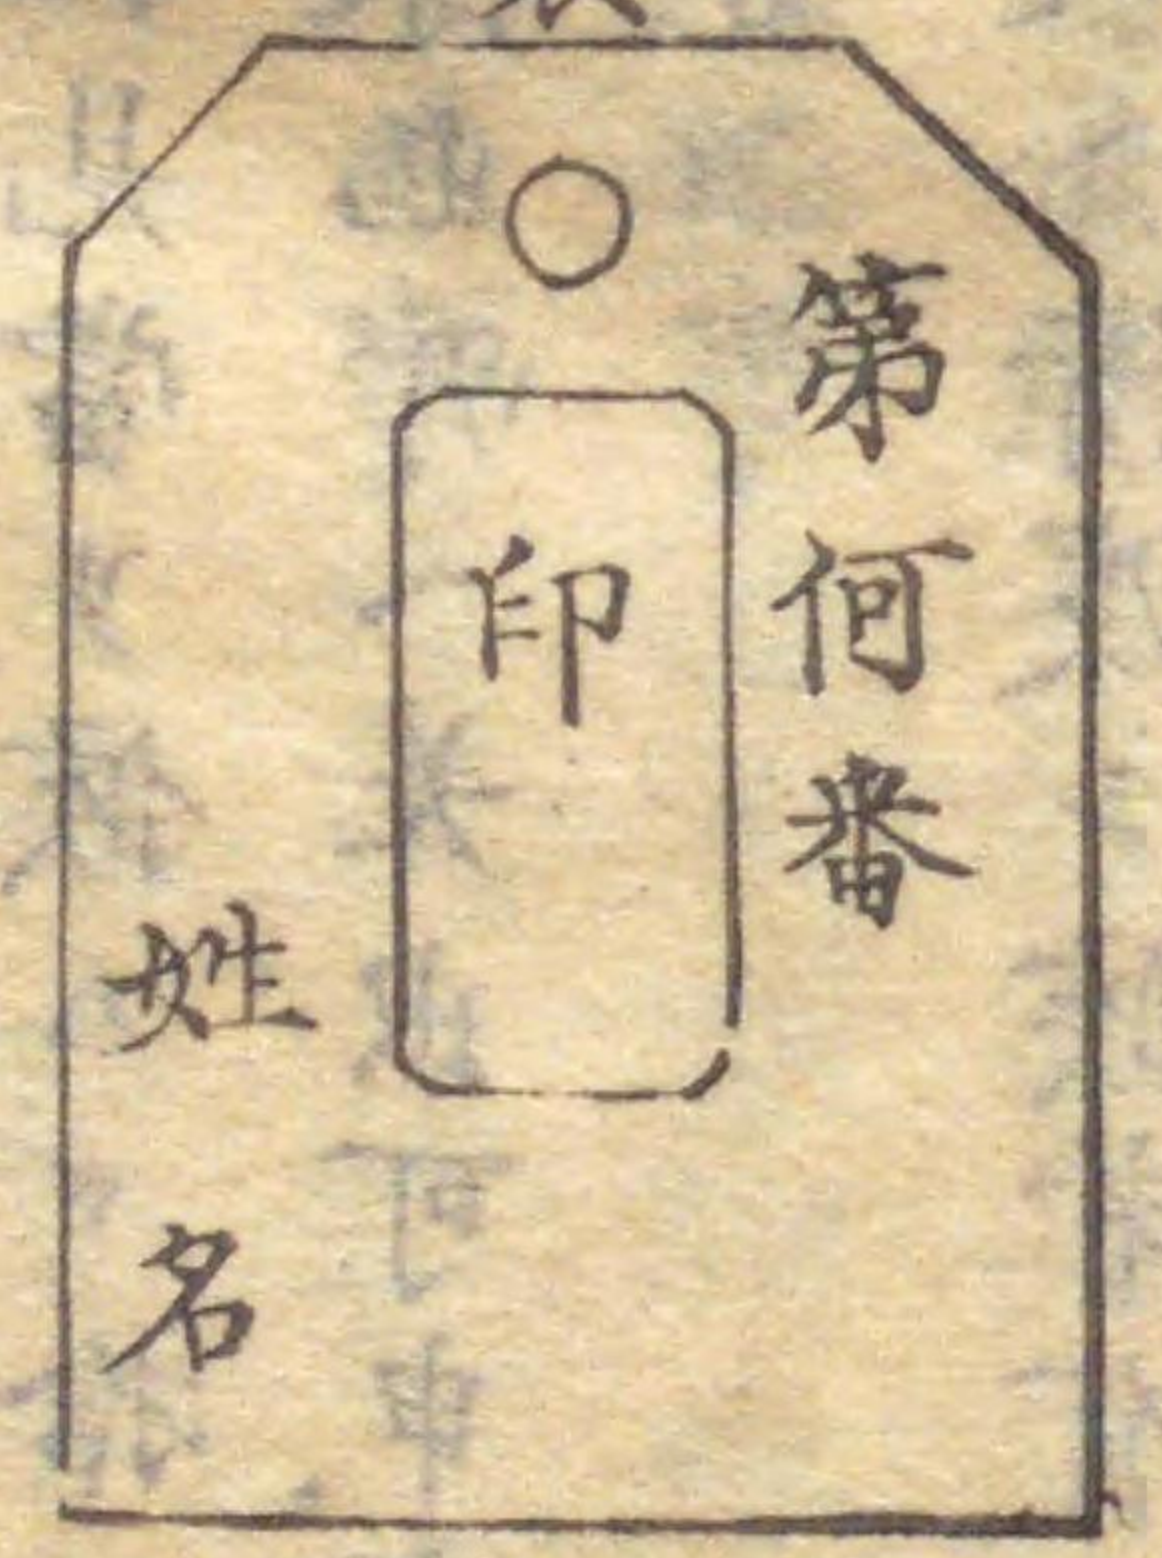 第何番
印
姓名